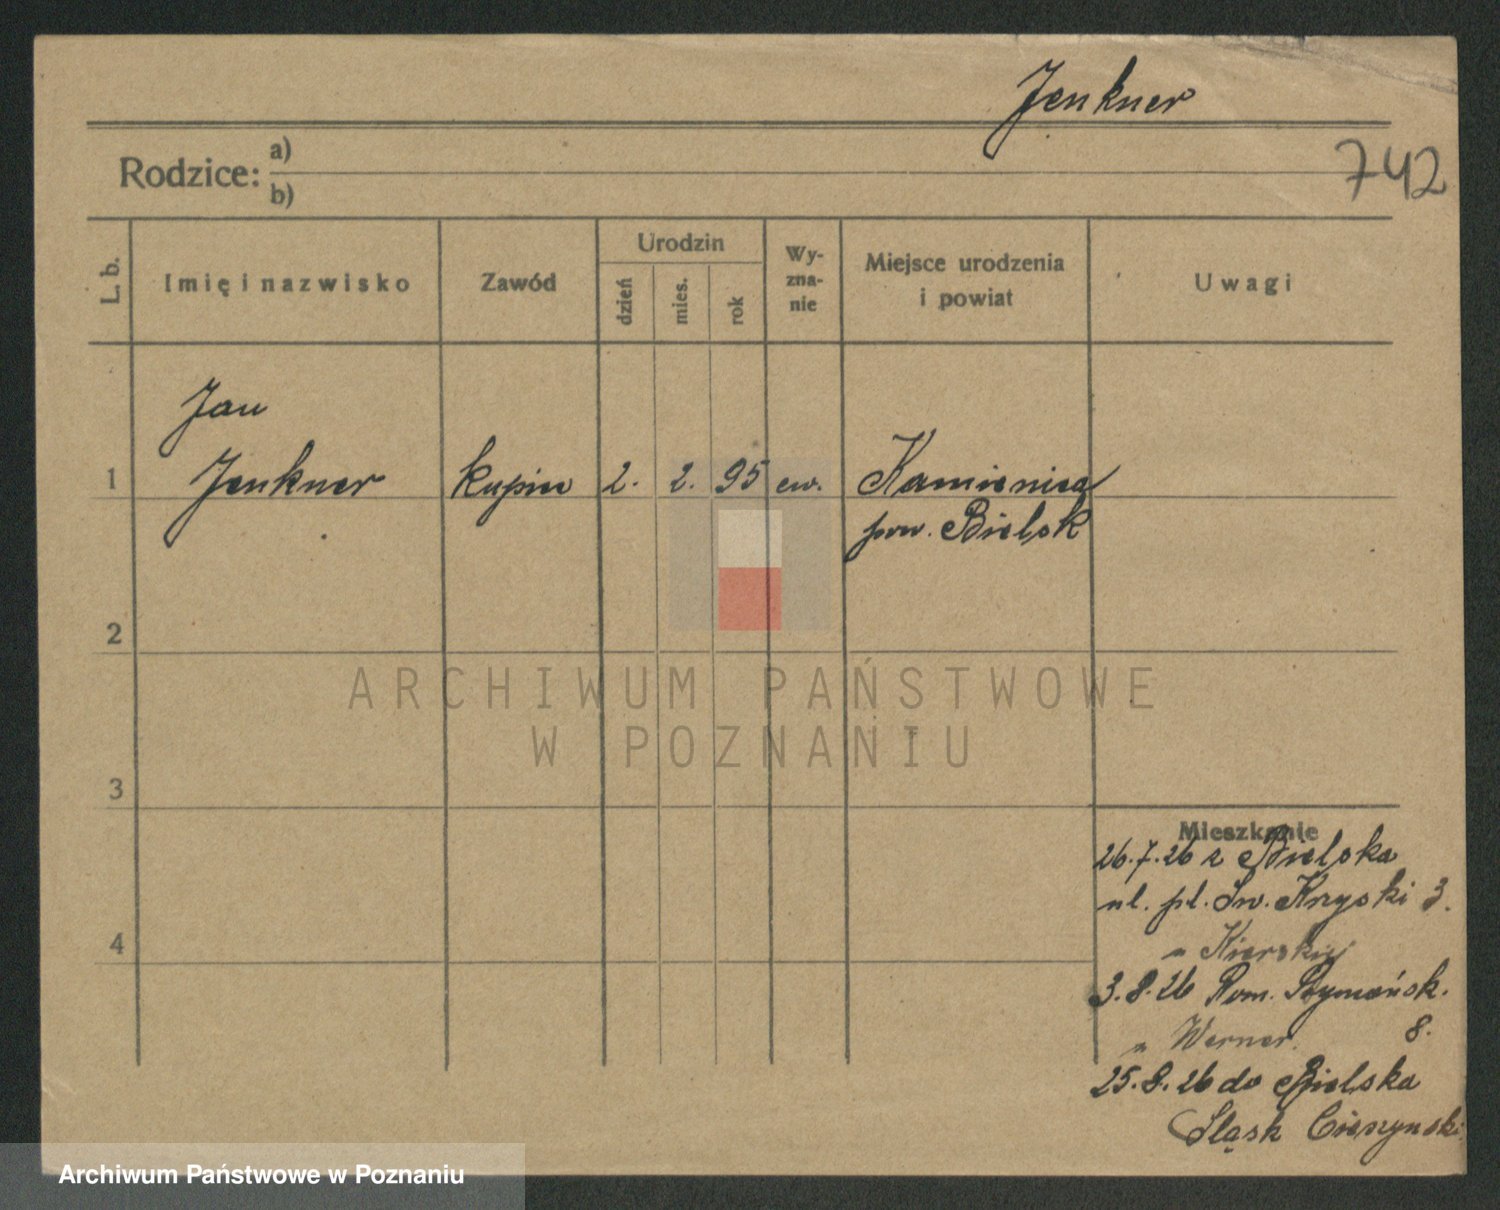 Jenkner
742
Rodzice: a)
b)
L. b.
Imię i nazwisko
Zawód
Urodzin
dzień
mies.
rok
Wy-
zna-
nie
Miejsce urodzenia
i powiat
Uwagi
Jan
1 Jenkner kupiec 2. 2. 95 ew. Kamienica
pow. Bielsk
2
ARCHIWUM PAŃSTWOWE
W POZNANIU
3
Mieszkanie
26.7.26 z Bielska
ul. pl. Św. Krzyski 3.
4
3.8.26 Rom. Szymańsk.
" Werner. 8.
25.8.26 do Bielska
Śląsk Cieszyński
Archiwum Państwowe w Poznaniu